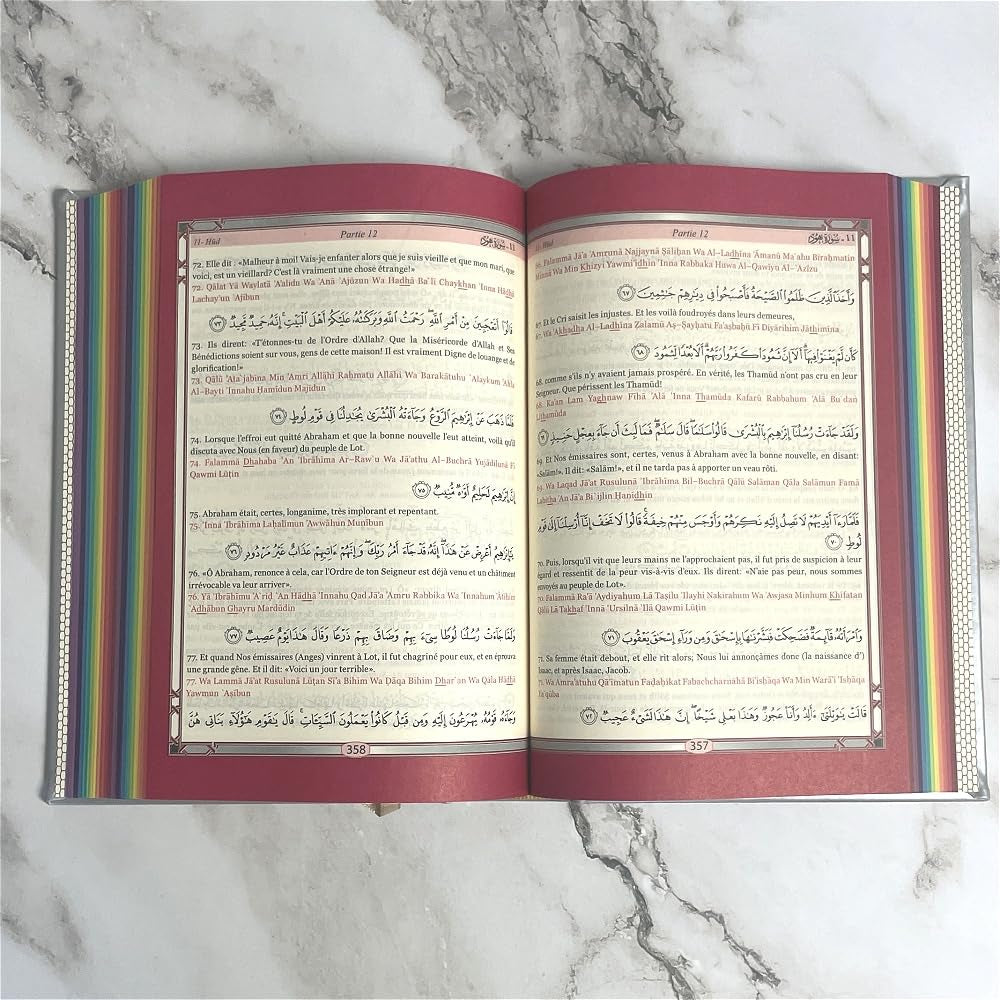 11- Hūd Partie 12 11 - سُورَةُ هُودٍ
66. Falammā Jā'a 'Amrunā Najjaynā Şāliĥan Wa Al-Ladhīna 'Āmanū Ma`ahu Biraĥmatin
Minnā Wa Min Khizyi Yawmi'idhin 'Inna Rabbaka Huwa Al-Qawīyu Al-`Azīzu
وَأَخَذَ الَّذِينَ ظَلَمُوا الصَّيْحَةُ فَأَصْبَحُوا فِي دِيَارِهِمْ جَاثِمِينَ ٦٧
67. Et le Cri saisit les injustes. Et les voilà foudroyés dans leurs demeures,
67. Wa 'Akhadha Al-Ladhīna Žalamū Aş-Şayĥatu Fa'aşbaĥū Fī Diyārihim Jāthimīna
كَأَن لَّمْ يَغْنَوْا فِيهَا أَلَا إِنَّ ثَمُودَ كَفَرُوا رَبَّهُمْ أَلَا بُعْدًا لِّثَمُودَ ٦٨
68. comme s'ils n'y avaient jamais prospéré. En vérité, les Thamūd n'ont pas cru en leur
Seigneur. Que périssent les Thamūd!
68. Ka'an Lam Yaghnaw Fīhā 'Alā 'Inna Thamūda Kafarū Rabbahum 'Alā Bu`dan
Lithamūda
وَلَقَدْ جَاءَتْ رُسُلُنَا إِبْرَاهِيمَ بِالْبُشْرَى قَالُوا سَلَامًا قَالَ سَلَامٌ فَمَا لَبِثَ أَن جَاءَ بِعِجْلٍ حَنِيذٍ ٦٩
69. Et Nos émissaires sont, certes, venus à Abraham avec la bonne nouvelle, en disant:
«Salām!». Il dit: «Salām!», et il ne tarda pas à apporter un veau rôti.
69. Wa Laqad Jā'at Rusulunā 'Ibrāhīma Bil-Buchrā Qālū Salāman Qāla Salāmun Famā
Labitha 'An Jā'a Bi`ijlin Ĥanīdhin
فَلَمَّا رَأَى أَيْدِيَهُمْ لَا تَصِلُ إِلَيْهِ نَكِرَهُمْ وَأَوْجَسَ مِنْهُمْ خِيفَةً قَالُوا لَا تَخَفْ إِنَّا أُرْسِلْنَا إِلَى قَوْمِ
لُوطٍ ٧٠
70. Puis, lorsqu'il vit que leurs mains ne l'approchaient pas, il fut pris de suspicion à leur
égard et ressentit de la peur vis-à-vis d'eux. Ils dirent: «N'aie pas peur, nous sommes
envoyés au peuple de Lot».
70. Falammā Ra'ā 'Aydiyahum Lā Taşilu 'Ilayhi Nakirahum Wa 'Awjasa Minhum Khīfatan
Qālū Lā Takhaf 'Innā 'Ursilnā 'Ilá Qawmi Lūţin
وَامْرَأَتُهُ قَائِمَةٌ فَضَحِكَتْ فَبَشَّرْنَاهَا بِإِسْحَاقَ وَمِن وَرَاءِ إِسْحَاقَ يَعْقُوبَ ٧١
71. Sa femme était debout, et elle rit alors; Nous lui annonçâmes donc (la naissance d')
Isaac, et après Isaac, Jacob.
71. Wa Amra'atuhu Qā'imatun Fađaĥikat Fabachcharnāhā Bi'isĥāqa Wa Min Warā'i 'Isĥāqa
Ya`qūba
قَالَتْ يَا وَيْلَتَى أَأَلِدُ وَأَنَا عَجُوزٌ وَهَذَا بَعْلِي شَيْخًا إِنَّ هَذَا لَشَيْءٌ عَجِيبٌ ٧٢
357
11- Hūd Partie 12 11 - سُورَةُ هُودٍ
72. Elle dit : «Malheur à moi! Vais-je enfanter alors que je suis vieille et que mon mari, que
voici, est un vieillard? C'est là vraiment une chose étrange!»
72. Qālat Yā Waylatā 'A'alidu Wa 'Anā `Ajūzun Wa Hadhā Ba`lī Chaykhan 'Inna Hādhā
Lachay'un `Ajībun
قَالُوا أَتَعْجَبِينَ مِنْ أَمْرِ اللَّهِ رَحْمَتُ اللَّهِ وَبَرَكَاتُهُ عَلَيْكُمْ أَهْلَ الْبَيْتِ إِنَّهُ حَمِيدٌ مَّجِيدٌ ٧٣
73. Ils dirent: «T'étonnes-tu de l'Ordre d'Allah? Que la Miséricorde d'Allah et Ses
Bénédictions soient sur vous, gens de cette maison! Il est vraiment Digne de louange et de
glorification!»
73. Qālū 'Ata`jabīna Min 'Amri Allāhi Raĥmatu Allāhi Wa Barakātuhu `Alaykum 'Ahla
Al-Bayti 'Innahu Ĥamīdun Majīdun
فَلَمَّا ذَهَبَ عَنْ إِبْرَاهِيمَ الرَّوْعُ وَجَاءَتْهُ الْبُشْرَى يُجَادِلُنَا فِي قَوْمِ لُوطٍ ٧٤
74. Lorsque l'effroi eut quitté Abraham et que la bonne nouvelle l'eut atteint, voilà qu'il
discuta avec Nous (en faveur) du peuple de Lot.
74. Falammā Dhahaba `An 'Ibrāhīma Ar-Raw`u Wa Jā'athu Al-Buchrā Yujādilunā Fī
Qawmi Lūţin
إِنَّ إِبْرَاهِيمَ لَحَلِيمٌ أَوَّاهٌ مُّنِيبٌ ٧٥
75. Abraham était, certes, longanime, très implorant et repentant.
75. 'Inna 'Ibrāhīma Laĥalīmun 'Awwāhun Munībun
يَا إِبْرَاهِيمُ أَعْرِضْ عَنْ هَذَا إِنَّهُ قَدْ جَاءَ أَمْرُ رَبِّكَ وَإِنَّهُمْ آتِيهِمْ عَذَابٌ غَيْرُ مَرْدُودٍ ٧٦
76. «Ô Abraham, renonce à cela, car l'Ordre de ton Seigneur est déjà venu et un châtiment
irrévocable va leur arriver».
76. Yā 'Ibrāhīmu 'A`riđ `An Hādhā 'Innahu Qad Jā'a 'Amru Rabbika Wa 'Innahum 'Ātīhim
`Adhābun Ghayru Mardūdin
وَلَمَّا جَاءَتْ رُسُلُنَا لُوطًا سِيءَ بِهِمْ وَضَاقَ بِهِمْ ذَرْعًا وَقَالَ هَذَا يَوْمٌ عَصِيبٌ ٧٧
77. Et quand Nos émissaires (Anges) vinrent à Lot, il fut chagriné pour eux, et en éprouva
une grande gêne. Et il dit: «Voici un jour terrible».
77. Wa Lammā Jā'at Rusulunā Lūţan Sī'a Bihim Wa Đāqa Bihim Dhar`an Wa Qāla Hādhā
Yawmun `Aşībun
وَجَاءَهُ قَوْمُهُ يُهْرَعُونَ إِلَيْهِ وَمِن قَبْلُ كَانُوا يَعْمَلُونَ السَّيِّئَاتِ قَالَ يَا قَوْمِ هَؤُلَاءِ بَنَاتِي هُنَّ
358